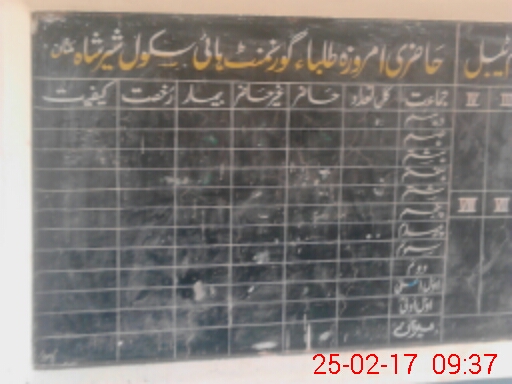 حاضری امروزہ طلباء گورنمنٹ ہائی سکول شیر شاہ ملتان
جماعت کل تعداد حاضر غیر حاضر بیمار رخصت کیفیت
IV
VIII VII
دہم
نہم
ہشتم
ہفتم
ششم
پنجم
چہارم
سوم
دوم
اول اعلیٰ
اول ادنیٰ
میزان
25-02-17 09:37